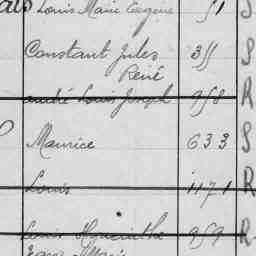 Louis Marie Eugène 51 S
Constant Jules 355 S
René
André Louis Joseph 958 R
Maurice 633 S
Louis 1171 R
Louis Hyacinthe 959 R
Jean Marie